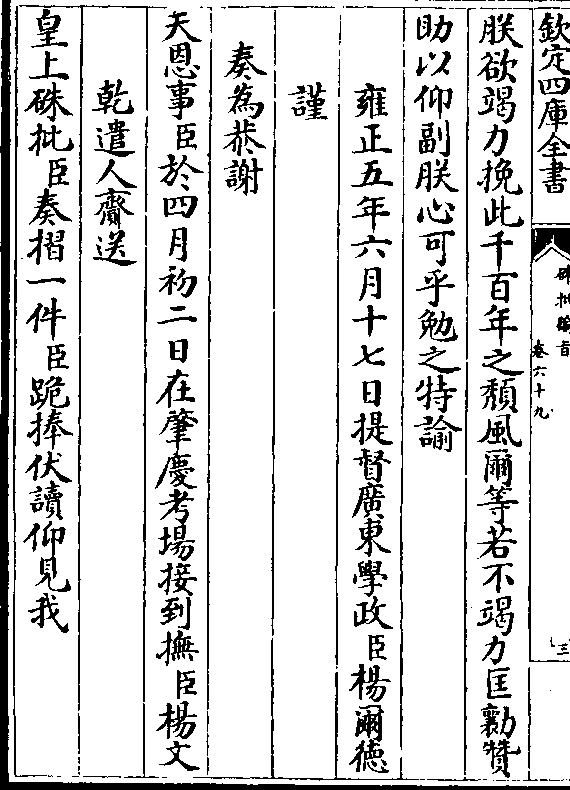 欽定四庫全書
硃批諭旨
卷六十九
三
朕欲竭力挽此千百年之頹風爾等若不竭力匡勷贊
助以仰副朕心可乎勉之特諭
雍正五年六月十七日提督廣東學政臣楊爾德
謹
奏為恭謝
天恩事臣於四月初二日在肇慶考場接到撫臣楊文
乾遣人齎送
皇上硃批臣奏摺一件臣跪捧伏讀仰見我